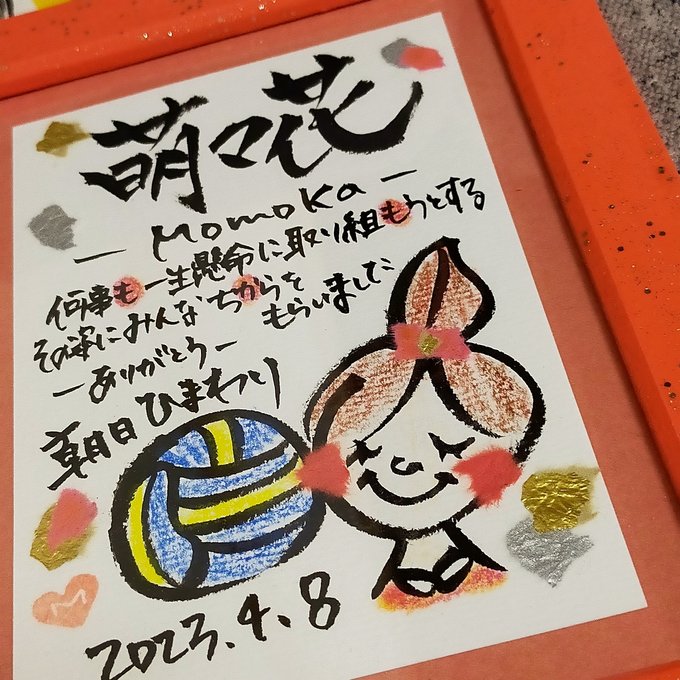 萌々花
— Momoka —
何事も一生懸命に取り組もうとする
その姿にみんなちからを
もらいました
—ありがとう—
朝日ひまわり
2023.4.8